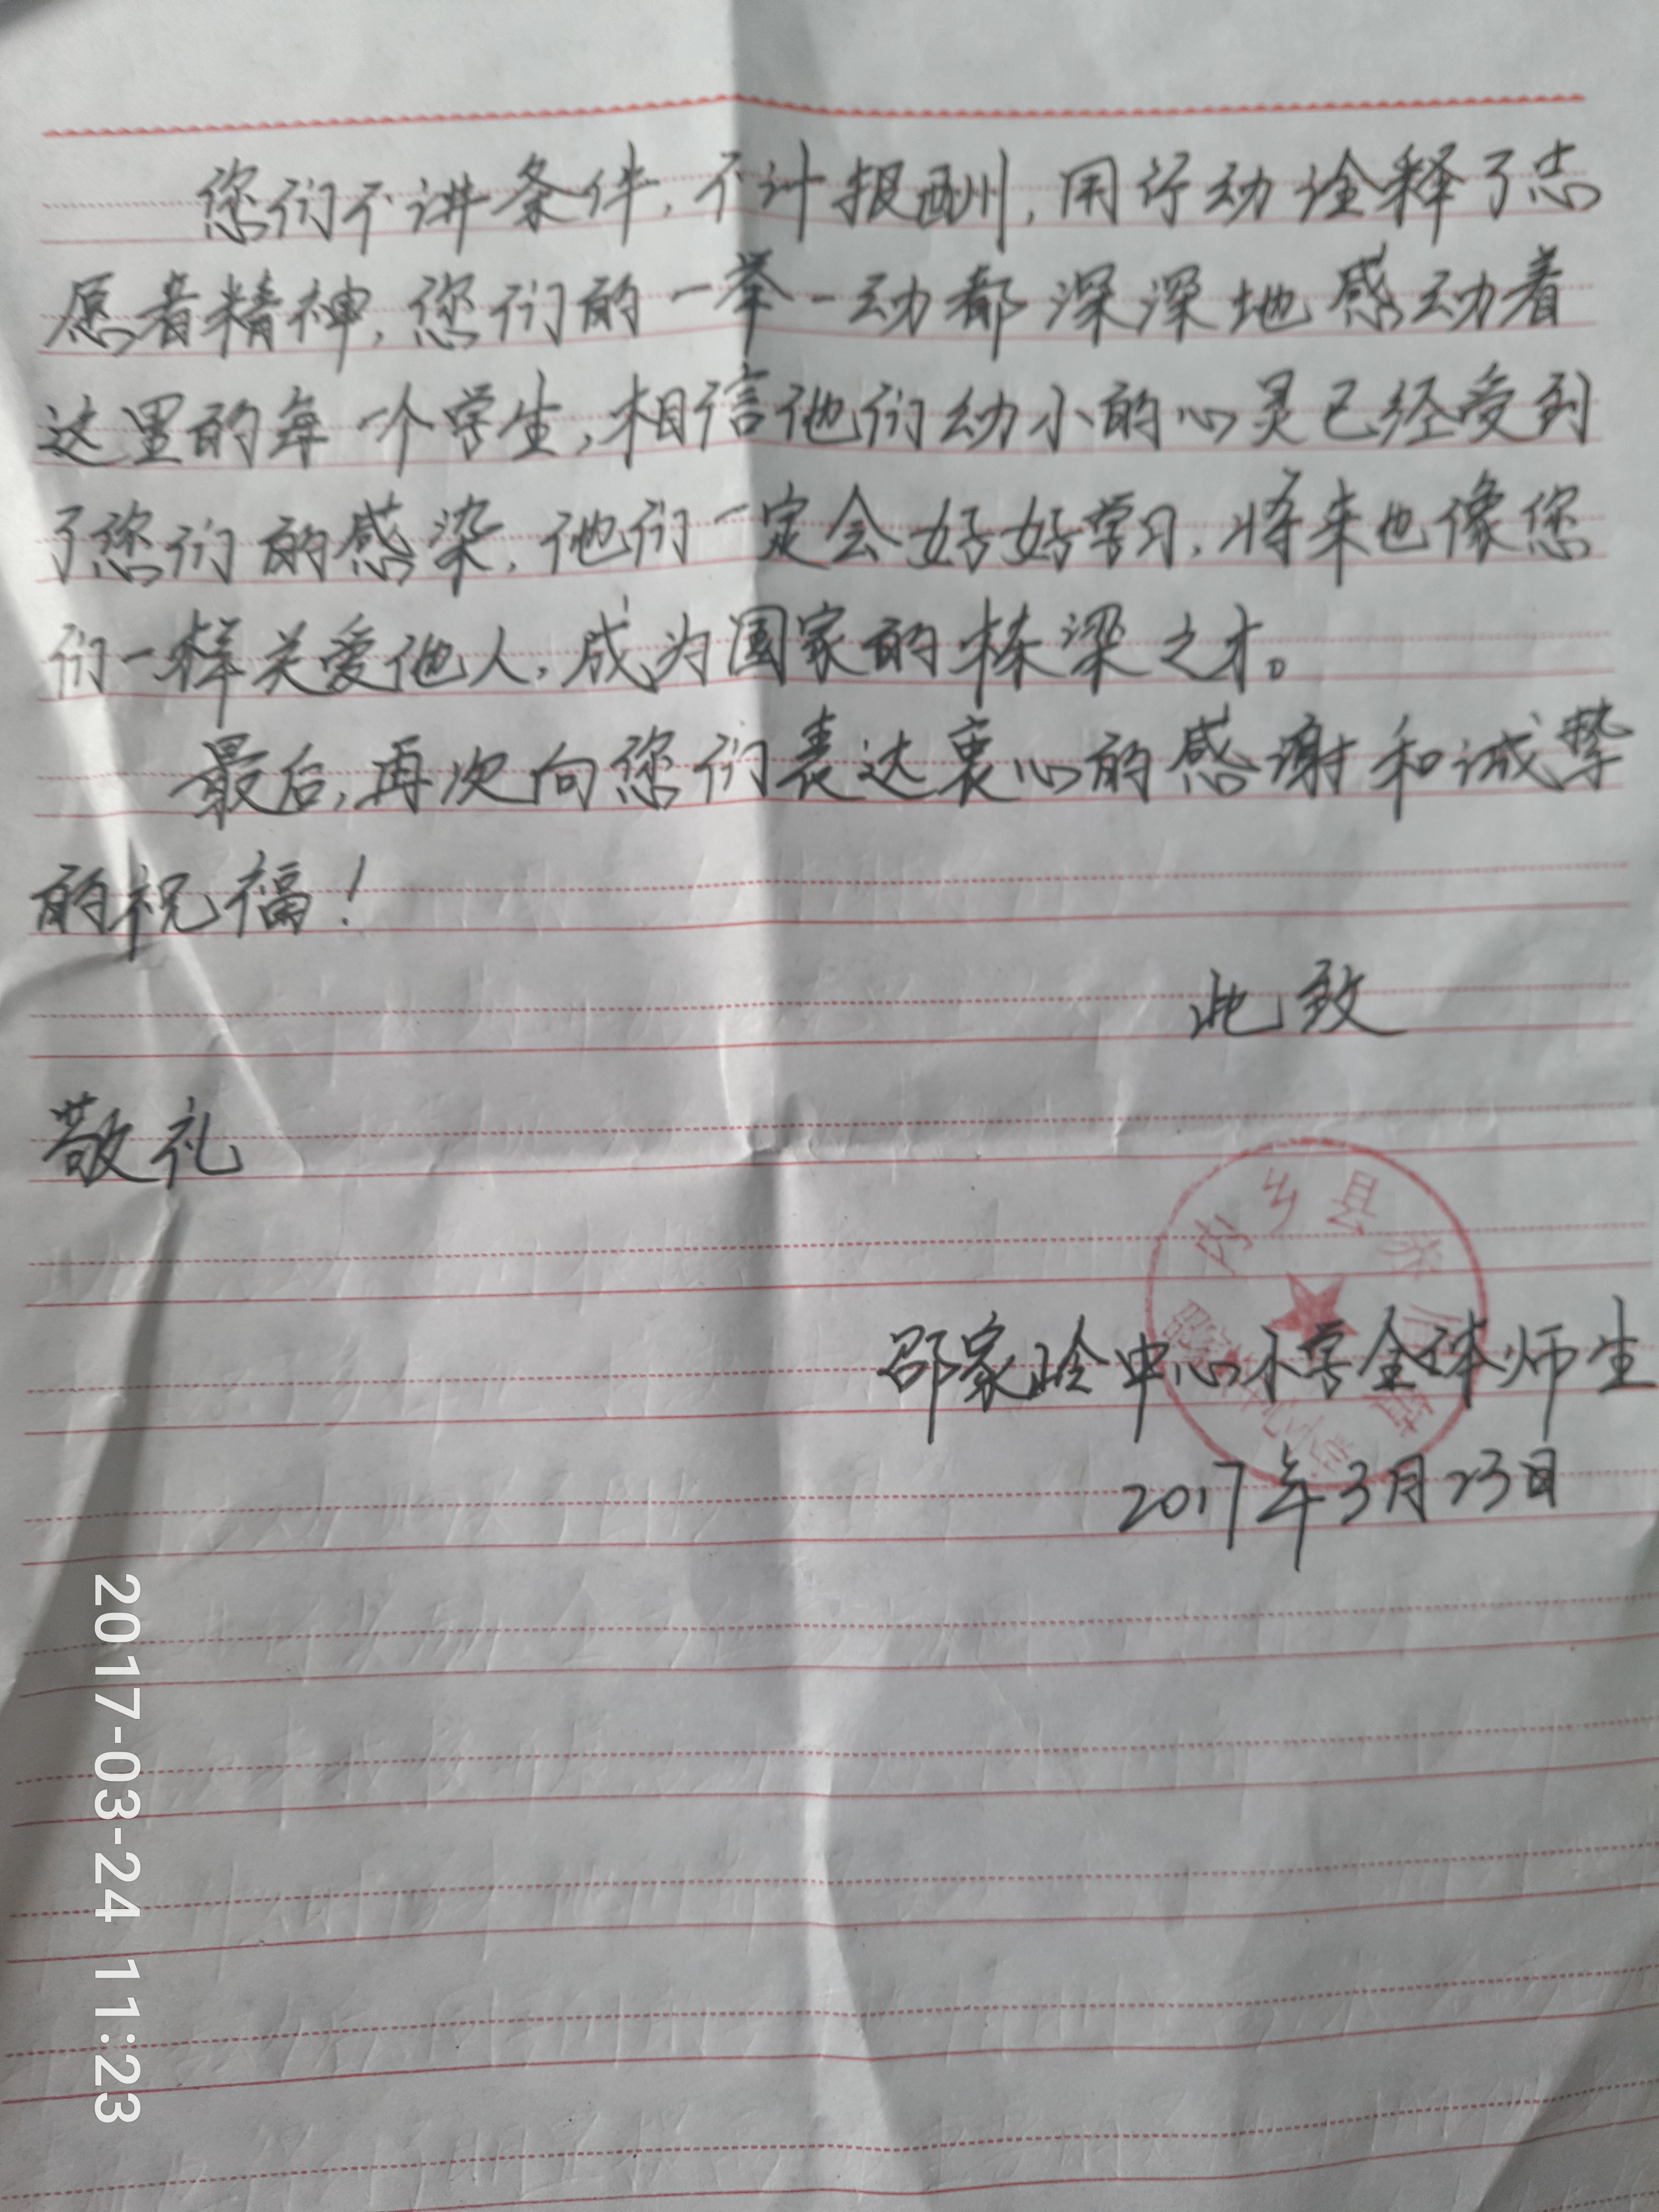 您们不讲条件,不计报酬,用行动诠释了志
愿者精神,您们的一举一动都深深地感动着
这里的每一个学生,相信他们幼小的心灵已经受到
了您们的感染,他们一定会好好学习,将来也像您
们一样关爱他人,成为国家的栋梁之才。
最后,再次向您们表达衷心的感谢和诚挚
的祝福!
此致
敬礼
内乡县赤眉镇
中心小学
邵家岭中心小学全体师生
2017年3月23日
2017-03-24 11:23